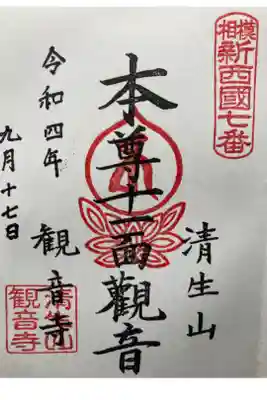 相模
新西國七番
清生山
本尊十一面觀音
観音寺
令和四年
九月十七日
清生山
観音寺